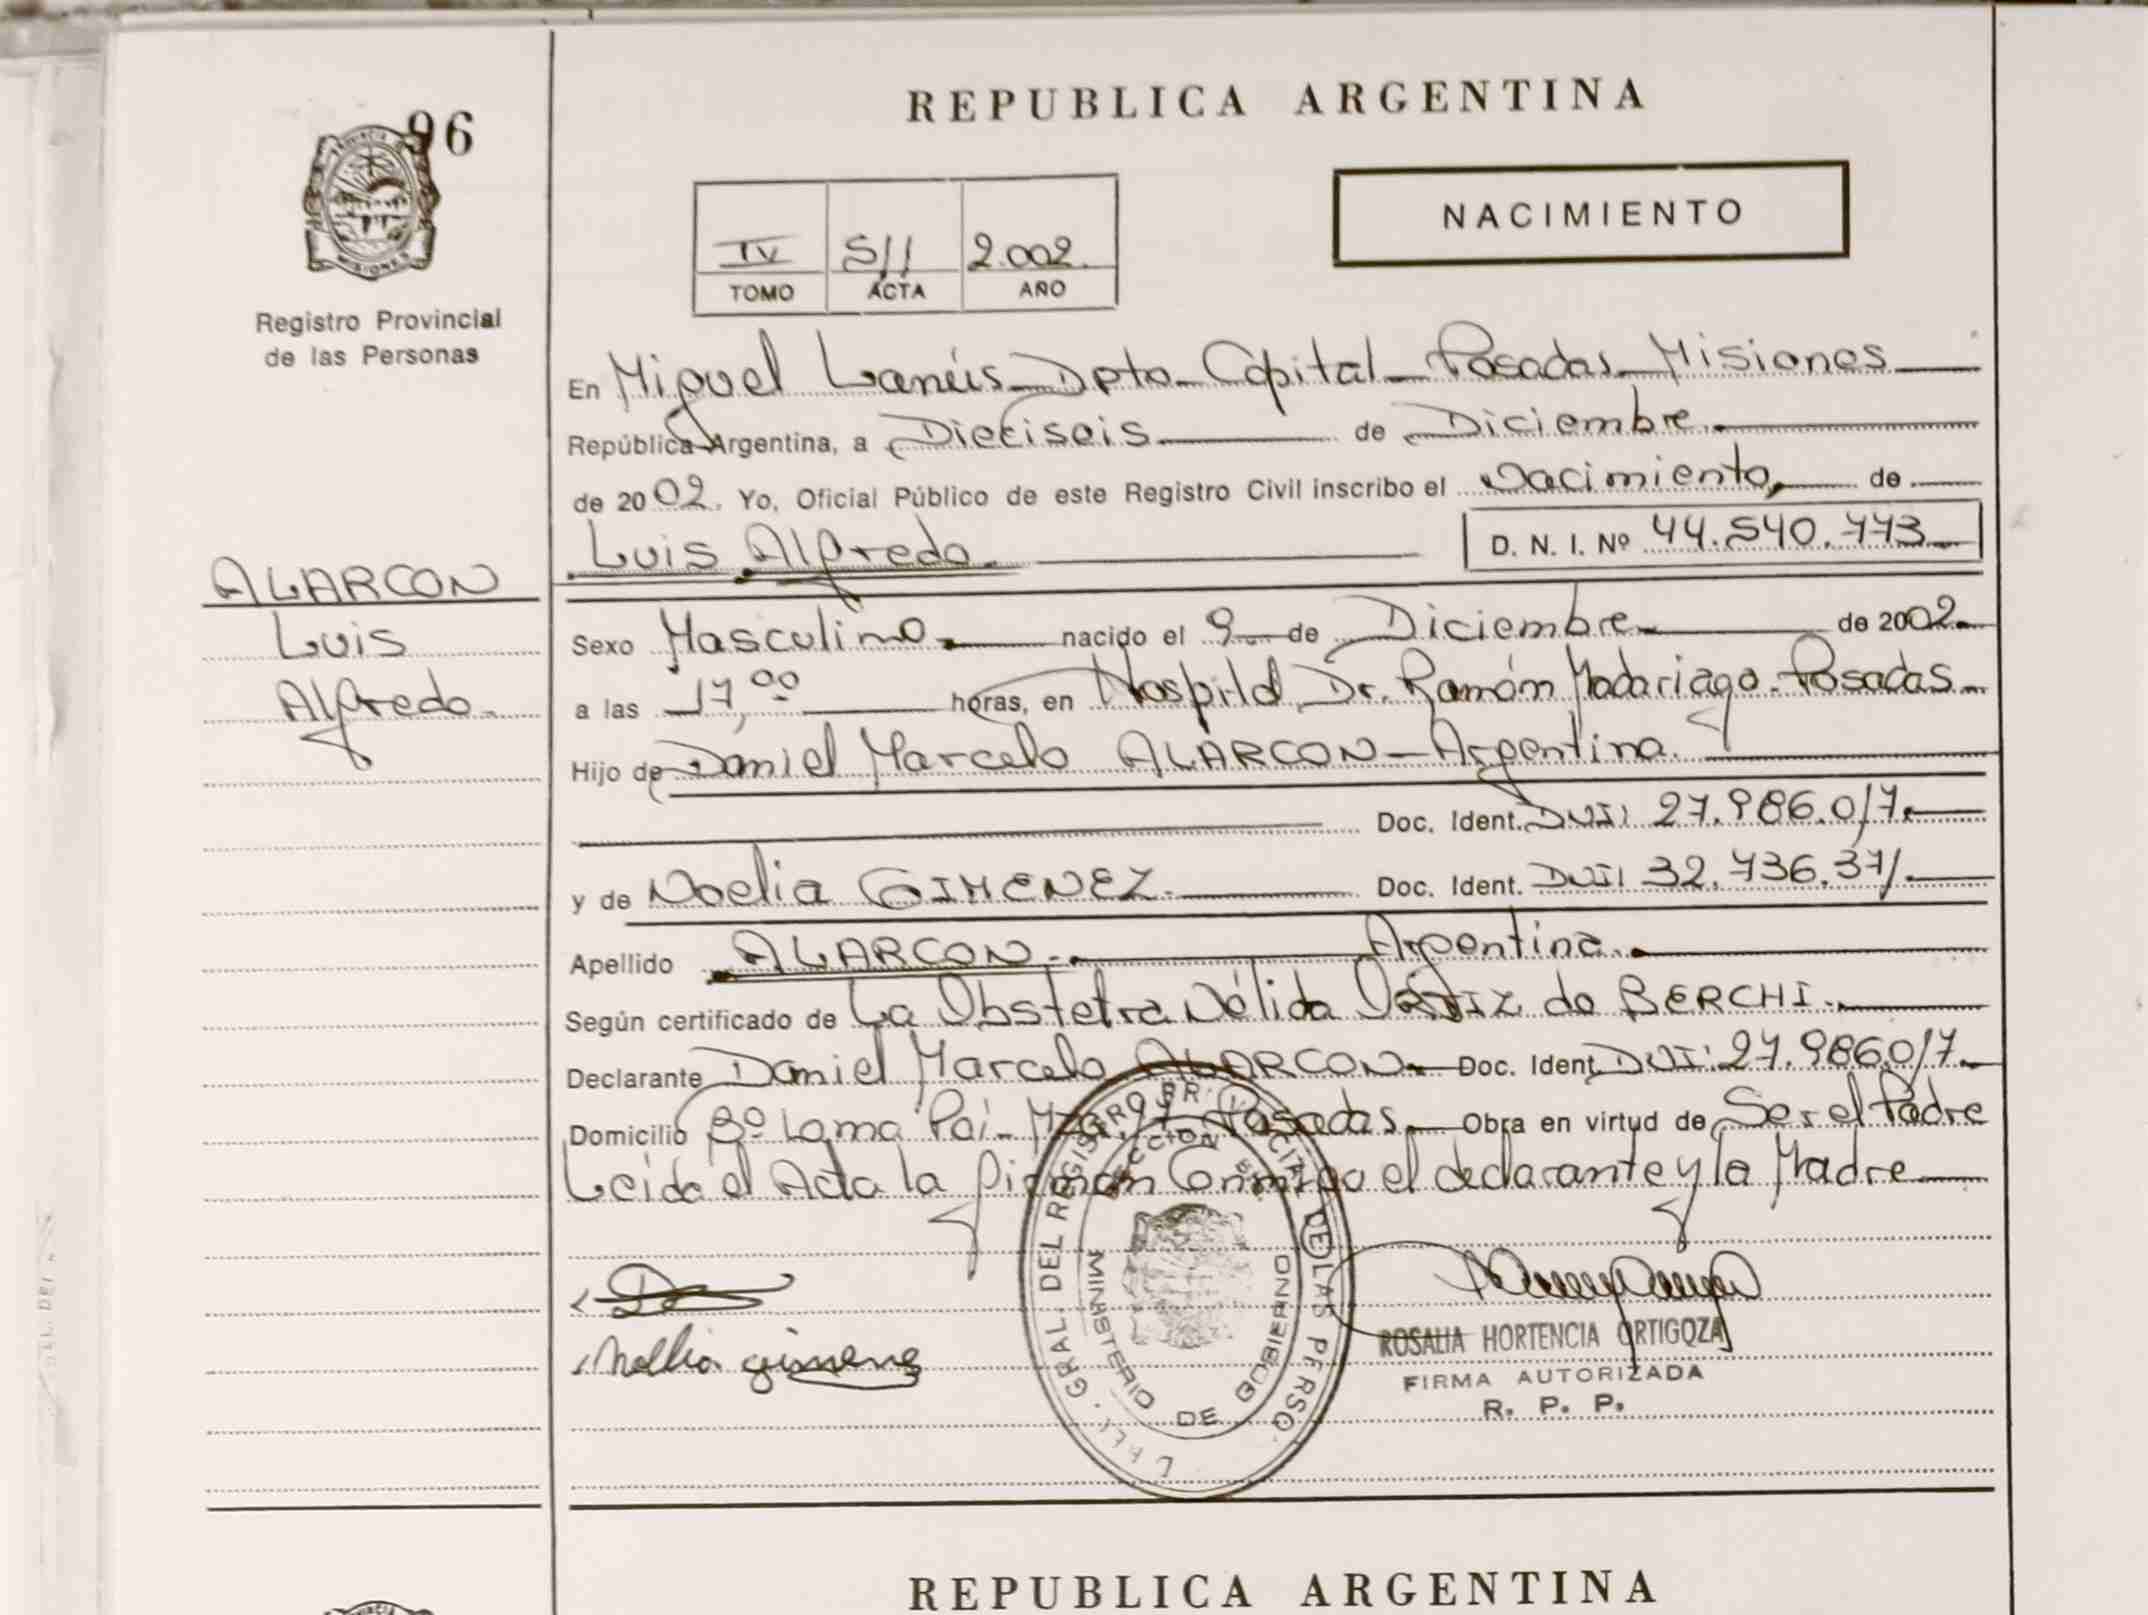 96
PROVINCIA DE
MISIONES
Registro Provincial
de las Personas
ALARCON
Luis
Alfredo.
REPUBLICA ARGENTINA
NACIMIENTO
IV 511 2.002.
TOMO ACTA AÑO
En Miguel Lanús Dpto Capital Posadas Misiones
República Argentina, a Dieciseis de Diciembre
de 2002. Yo, Oficial Público de este Registro Civil inscribo el Nacimiento, de
Luis Alfredo. D. N. I. Nº 44.540.773
Sexo Masculino nacido el 9 de Diciembre de 2002.
a las 17,00 horas, en Hospital Dr. Ramón Madariaga Posadas
Hijo de Daniel Marcelo ALARCON - Argentina.
Doc. Ident. DNI: 27.986.017.
y de Noelia GIMENEZ. Doc. Ident. DNI: 32.736.371.
Apellido ALARCON. Argentina.
Según certificado de La Obstetra Nélida de BERCHI.
Declarante Daniel Marcelo ALARCON Doc. Ident. DNI: 27.986.017.
Domicilio Bº Loma Poi - Posadas. Obra en virtud de Ser el Padre
Leída el Acta la firman Conmigo el declarante y la Madre
GRAL. DEL REGISTRO PROVINCIAL DE LAS PERSO
MINISTERIO DE GOBIERNO
ROSALIA HORTENCIA ORTIGOZA
FIRMA AUTORIZADA
R. P. P.
REPUBLICA ARGENTINA